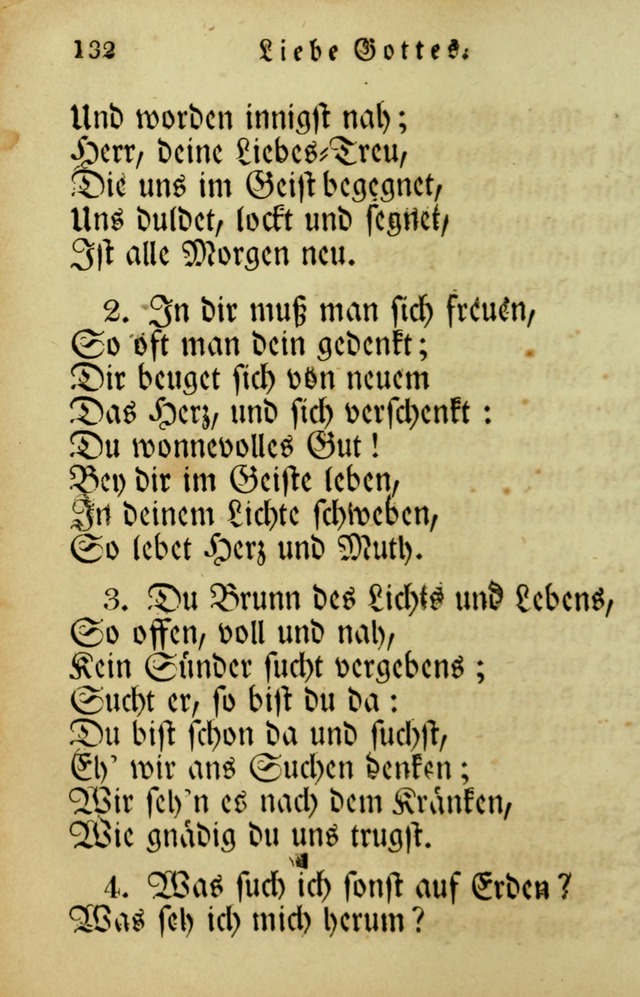 132 Liebe Gottes.
Und worden innigst nah;
Herr, deine Liebes-Treu,
Die uns im Geist begegnet,
Uns duldet, lockt und segnet,
Ist alle Morgen neu.
2. In dir muß man sich freuen,
So oft man dein gedenkt;
Dir beuget sich von neuem
Das Herz, und sich verschenkt:
Du wonnevolles Gut!
Bey dir im Geiste leben,
In deinem Lichte schweben,
So lebet Herz und Muth.
3. Du Brunn des Lichts und Lebens,
So offen, voll und nah,
Kein Sünder sucht vergebens;
Sucht er, so bist du da:
Du bist schon da und suchst,
Eh' wir ans Suchen denken;
Wir seh'n es nach dem Kränken,
Wie gnädig du uns trugst.
4. Was such ich sonst auf Erden?
Was seh ich mich herum?